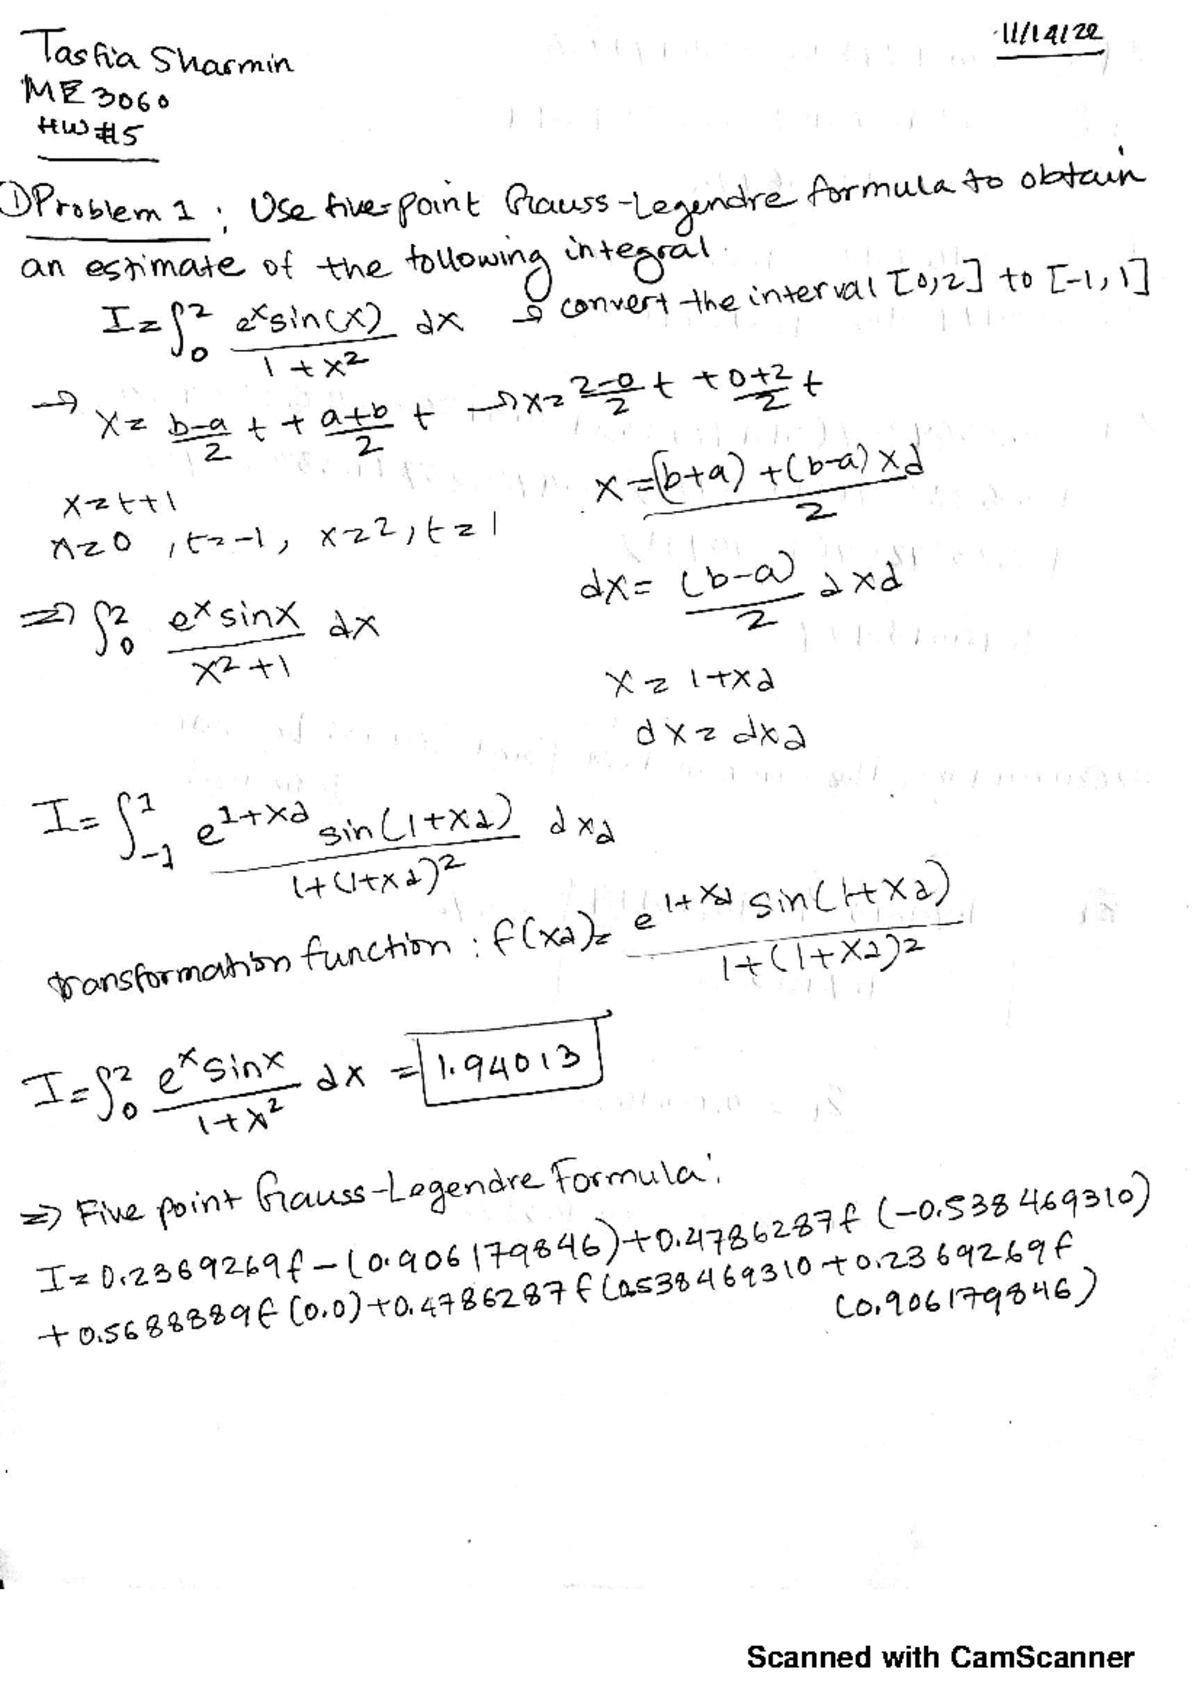 Tasfia Sharmin
11/14/22
ME 3060
HW #5
1) Problem 1: Use five point Gauss-Legendre formula to obtain
an estimate of the following integral.
I = ∫₀² e^x sin(x) / (1 + x²) dx → convert the interval [0,2] to [-1,1]
→ x = (b-a)/2 t + (a+b)/2 t → x = (2-0)/2 t + (0+2)/2 t
x = t+1
x = ((b+a) + (b-a) xd) / 2
x = 0, t = -1, x = 2, t = 1
dx = (b-a)/2 dxd
⇒ ∫₀² e^x sinx / (x² + 1) dx
x = 1+xd
dx = dxd
I = ∫₋₁¹ e^(1+xd) sin(1+xd) / (1+(1+xd)²) dxd
transformation function: f(xd) = e^(1+xd) sin(1+xd) / (1+(1+xd)²)
I = ∫₀² e^x sinx / (1+x²) dx = 1.94013
⇒ Five point Gauss-Legendre Formula:
I = 0.2369269f - (0.906179846) + 0.4786287f (-0.538469310)
+ 0.5688889f (0.0) + 0.4786287f (0.538469310 + 0.2369269f
(0.906179846)
Scanned with CamScanner